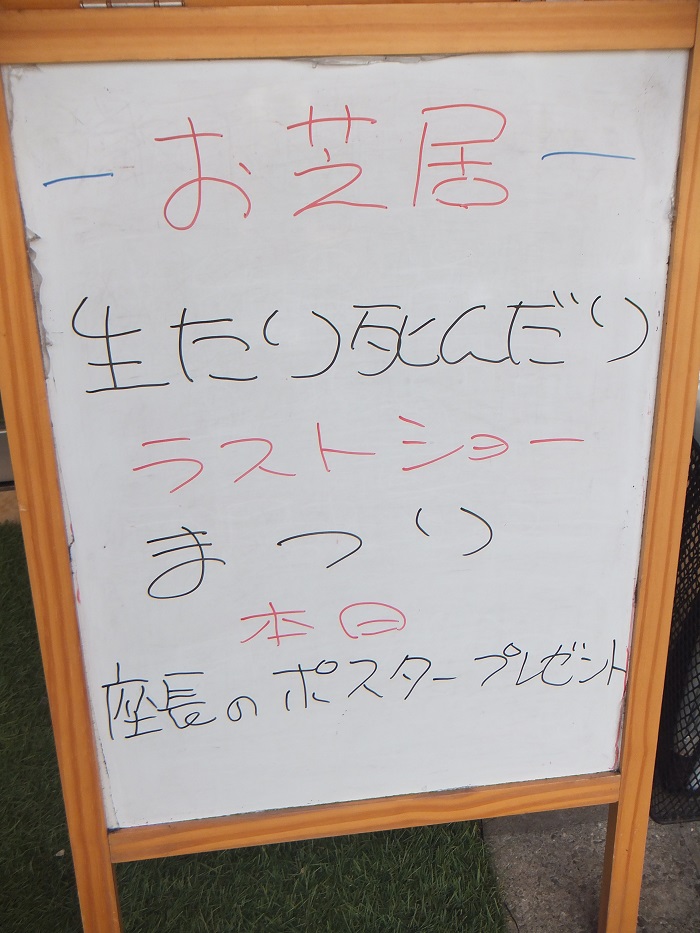 お芝居
生たり死んだり
ラストショー
まつり
本日
座長のポスタープレゼント